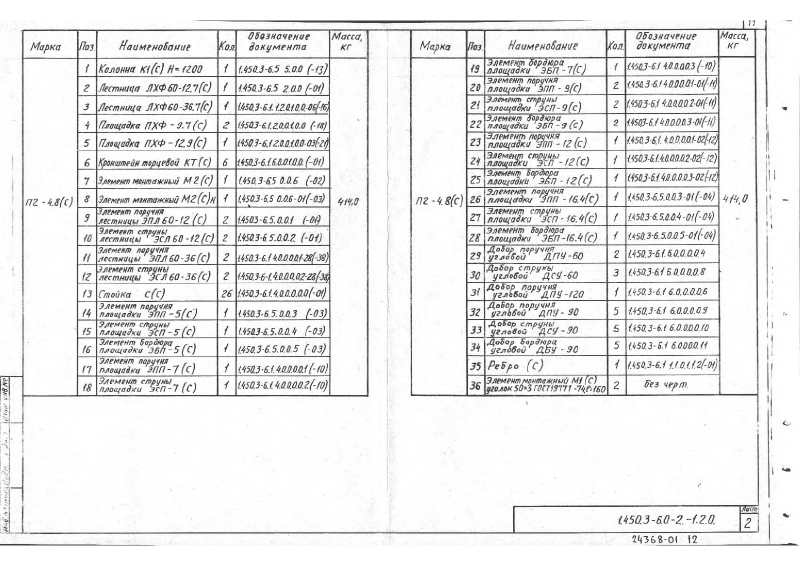 11
Марка Поз. Наименование Кол. Обозначение документа Масса, кг
П2-4.8(С) 414,0
1 Колонна К1(С) Н=1200 1 1.450.3-6.5 5.0.0 (-13)
2 Лестница ЛХФ60-12,7(С) 1 1.450.3-6.5 2.0.0 (-01)
3 Лестница ЛХФ60-36,7(С) 1 1.450.3-6.1.1.2.0.1.0.0-06(-16)
4 Площадка ПХФ-9.7(С) 2 1.450.3-6.1.2.0.0.1.0.0 (-18)
5 Площадка ПХФ-12,9(С) 1 1.450.3-6.1.2.0.0.1.0.0-03(-21)
6 Кронштейн торцевой КТ(С) 6 1.450.3-6.1.6.0.0.1.0.0. (-01)
7 Элемент монтажный М2(С) 1 1.450.3-6.5 0.0.6 (-02)
8 Элемент монтажный М2(С)н 1 1.450.3-6.5 0.0.6-01 (-03)
9 Элемент поручня лестницы ЭПЛ60-12(С) 2 1.450.3-6.5.0.0.1 (-01)
10 Элемент струны лестницы ЭСЛ60-12(С) 2 1.450.3-6.5.0.0.2 (-01)
11 Элемент поручня лестницы ЭПЛ60-36(С) 2 1.450.3-6.1.4.0.0.0.0.1-28(-38)
12 Элемент струны лестницы ЭСЛ60-36(С) 2 1.450.3-6.1.4.0.0.0.0.2-28(-38)
13 Стойка С(С) 26 1.450.3-6.1.4.0.0.0.0.0(-01)
14 Элемент поручня площадки ЭПП-5(С) 1 1.450.3-6.5.0.0.3 (-03)
15 Элемент струны площадки ЭСП-5(С) 1 1.450.3-6.5.0.0.4 (-03)
16 Элемент бордюра площадки ЭБП-5(С) 1 1.450.3-6.5.0.0.5 (-03)
17 Элемент поручня площадки ЭПП-7(С) 1 1.450.3-6.1.4.0.0.0.0.1(-10)
18 Элемент струны площадки ЭСП-7(С) 1 1.450.3-6.1.4.0.0.0.0.2(-10)
Марка Поз. Наименование Кол. Обозначение документа Масса, кг
П2-4.8(С) 414,0
19 Элемент бордюра площадки ЭБП-7(С) 1 1.450.3-6.1.4.0.0.0.0.3(-10)
20 Элемент поручня площадки ЭПП-9(С) 2 1.450.3-6.1.4.0.0.0.0.1-01(-11)
21 Элемент струны площадки ЭСП-9(С) 2 1.450.3-6.1.4.0.0.0.0.2-01(-11)
22 Элемент бордюра площадки ЭБП-9(С) 2 1.450.3-6.1.4.0.0.0.0.3-01(-11)
23 Элемент поручня площадки ЭПП-12(С) 1 1.450.3-6.1.4.0.0.0.0.1-02(-12)
24 Элемент струны площадки ЭСП-12(С) 1 1.450.3-6.1.4.0.0.0.0.2-02(-12)
25 Элемент бордюра площадки ЭБП-12(С) 1 1.450.3-6.1.4.0.0.0.0.3-02(-12)
26 Элемент поручня площадки ЭПП-16.4(С) 1 1.450.3-6.5.0.0.3-01(-04)
27 Элемент струны площадки ЭСП-16.4(С) 1 1.450.3-6.5.0.0.4-01(-04)
28 Элемент бордюра площадки ЭБП-16.4(С) 1 1.450.3-6.5.0.0.5-01(-04)
29 Добор поручня угловой ДПУ-60 2 1.450.3-6.1 6.0.0.0.0.4
30 Добор струны угловой ДСУ-60 3 1.450.3-6.1 6.0.0.0.0.8
31 Добор поручня угловой ДПУ-120 1 1.450.3-6.1 6.0.0.0.0.6
32 Добор поручня угловой ДПУ-90 5 1.450.3-6.1 6.0.0.0.0.9
33 Добор струны угловой ДСУ-90 5 1.450.3-6.1 6.0.0.0.0.10
34 Добор бордюра угловой ДБУ-90 5 1.450.3-6.1 6.0.0.0.0.11
35 Ребро (С) 1 1.450.3-6.1 1.1.0.1.1.2(-01)
36 Элемент монтажный М1(С) уголок 50×3 ГОСТ19771-74,ℓ=160 2 без черт.
1.450.3-6.0-2.-1.2.0.
Лист
2
24368-01 12